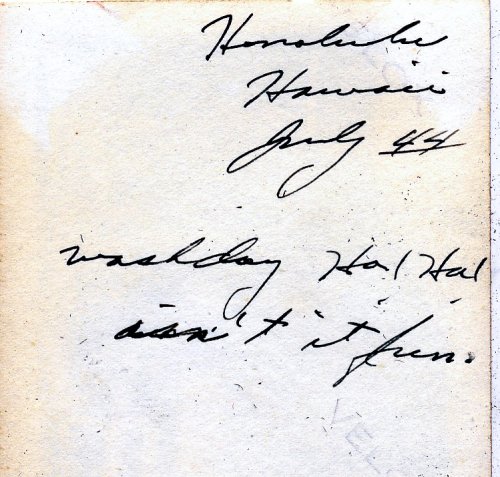 Honolulu
Hawaii
July 44
washday Ha! Ha!
isn't it fun.
VEL